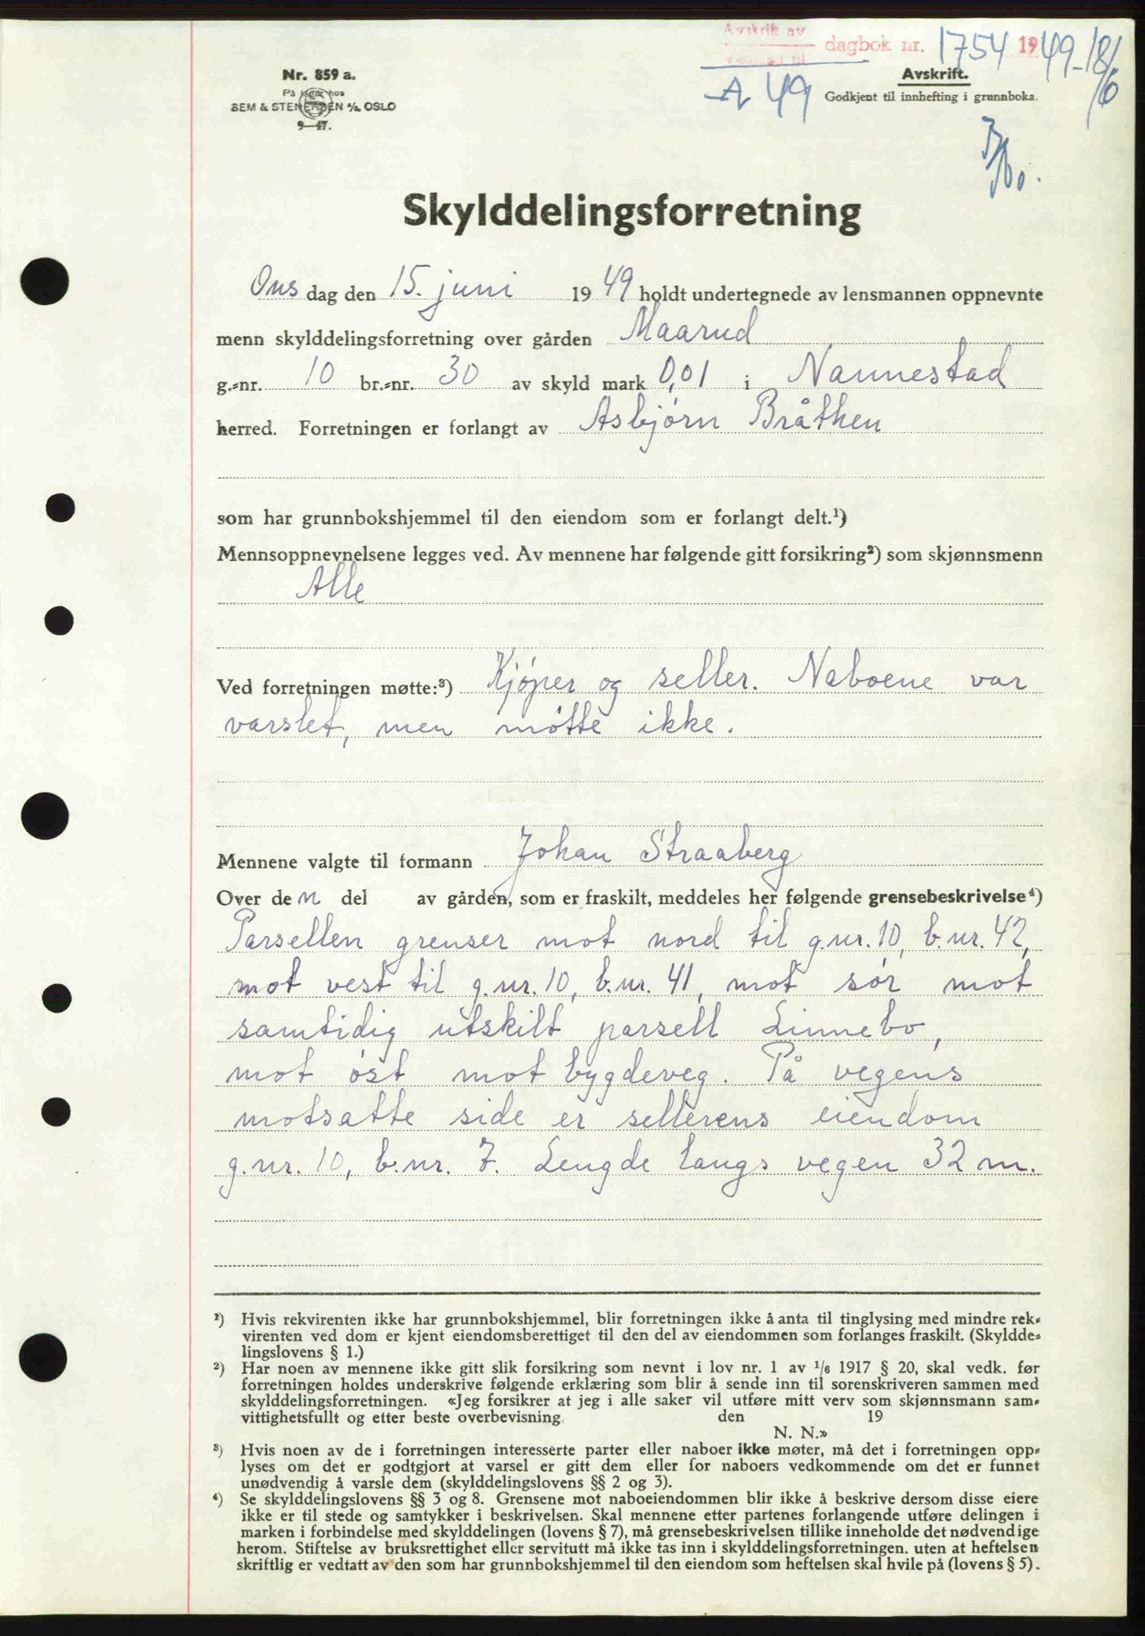 Avskrift av
dagbok nr. 1754 1949-18/6
A 49
Nr. 859 a.
På lager hos
SEM & STENERSEN A/S, OSLO
9-47.
Avskrift.
Godkjent til innhefting i grunnboka.
Skylddelingsforretning
Ons dag den 15. juni 1949 holdt undertegnede av lensmannen oppnevnte
menn skylddelingsforretning over gården Maarud
g.-nr. 10 br.-nr. 30 av skyld mark 0,01 i Nannestad
herred. Forretningen er forlangt av Asbjørn Bråthen
som har grunnbokshjemmel til den eiendom som er forlangt delt.¹)
Mennsoppnevnelsene legges ved. Av mennene har følgende gitt forsikring²) som skjønnsmenn
Alle
Ved forretningen møtte:³) Kjøper og seller. Naboene var
varslet, men møtte ikke.
Mennene valgte til formann Johan Straaberg
Over den del av gården, som er fraskilt, meddeles her følgende grensebeskrivelse⁴)
Parsellen grenser mot nord til g.nr. 10, b.nr. 42,
mot vest til g.nr. 10, b.nr. 41, mot sør mot
samtidig utskilt parsell Linnebo,
mot øst mot bygdeveg. På vegens
motsatte side er sellerens eiendom
g.nr. 10, b.nr. 7. Lengde langs vegen 32 m.
¹) Hvis rekvirenten ikke har grunnbokshjemmel, blir forretningen ikke å anta til tinglysing med mindre rek-
virenten ved dom er kjent eiendomsberettiget til den del av eiendommen som forlanges fraskilt. (Skyldde-
lingslovens § 1.)
²) Har noen av mennene ikke gitt slik forsikring som nevnt i lov nr. 1 av 1/6 1917 § 20, skal vedk. før
forretningen holdes underskrive følgende erklæring som blir å sende inn til sorenskriveren sammen med
skylddelingsforretningen. «Jeg forsikrer at jeg i alle saker vil utføre mitt verv som skjønnsmann sam-
vittighetsfullt og etter beste overbevisning den 19
N. N.»
³) Hvis noen av de i forretningen interesserte parter eller naboer ikke møter, må det i forretningen opp-
lyses om det er godtgjort at varsel er gitt dem eller for naboers vedkommende om det er funnet
unødvendig å varsle dem (skylddelingslovens §§ 2 og 3).
⁴) Se skylddelingslovens §§ 3 og 8. Grensene mot naboeiendommen blir ikke å beskrive dersom disse eiere
ikke er til stede og samtykker i beskrivelsen. Skal mennene etter partenes forlangende utføre delingen i
marken i forbindelse med skylddelingen (lovens § 7), må grensebeskrivelsen tillike inneholde det nødvendige
herom. Stiftelse av bruksrettighet eller servitutt må ikke tas inn i skylddelingsforretningen. uten at heftelsen
skriftlig er vedtatt av den som har grunnbokshjemmel til den eiendom som heftelsen skal hvile på (lovens § 5).